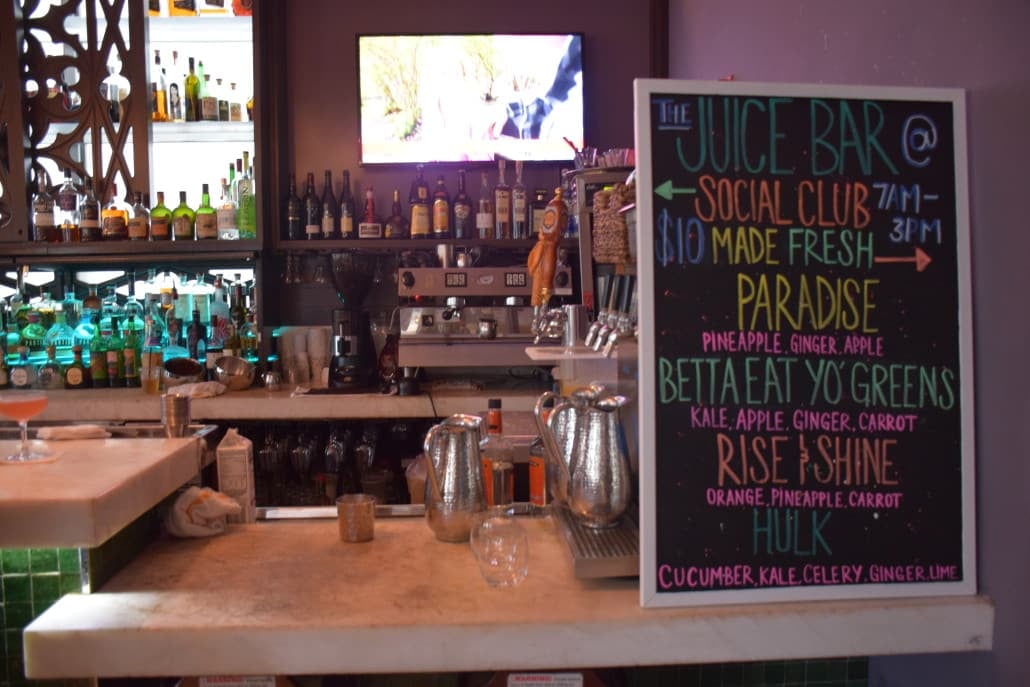 THE JUICE BAR @
SOCIAL CLUB 7AM-
3PM
$10 MADE FRESH
PARADISE
PINEAPPLE, GINGER, APPLE
BETTA EAT YO' GREENS
KALE, APPLE, GINGER, CARROT
RISE & SHINE
ORANGE, PINEAPPLE, CARROT
HULK
CUCUMBER, KALE, CELERY, GINGER, LIME
WARNING
WARNING